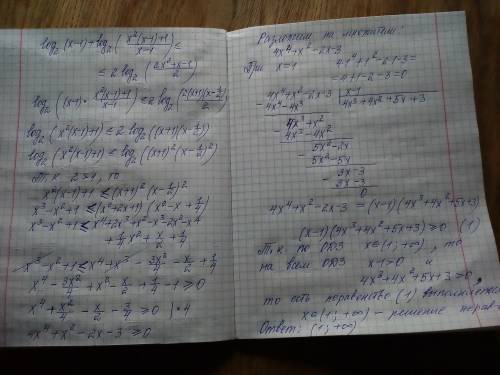 log₂(x-1)+log₂(x²(x-1)+1 / x-1) ≤
≤ 2log₂(2x²+x-1 / 2)
log₂((x-1)·x²(x-1)+1 / x-1) ≤ 2log₂(2(x+1)(x-1/2) / 2)
log₂(x²(x-1)+1) ≤ 2log₂((x+1)(x-1/2))
log₂(x²(x-1)+1) ≤ log₂((x+1)²(x-1/2)²)
Т.к 2>1, то
x²(x-1)+1 ≤ (x+1)²(x-1/2)²
x³-x²+1 ≤ (x²+2x+1)(x²-x+1/4)
x³-x²+1 ≤ x⁴+2x³+x²-x³-2x²-x+
+1/4x²+x/2+1/4
x³-x²+1 ≤ x⁴+x³-3x²/4-x/2+1/4
x⁴-3x²/4+x²-x/2+1/4-1≥0
x⁴+x²/4-x/2-3/4≥0 |·4
4x⁴+x²-2x-3≥0
Разложим на множители:
4x⁴+x²-2x-3
При x=1 4·1⁴+1²-2·1-3=
=4+1-2-3=0
4x⁴+x²-2x-3 | x-1
4x⁴-4x³ 4x³+4x²+5x+3
4x³+x²
4x³-4x²
5x²-2x
5x²-5x
3x-3
3x-3
0
4x⁴+x²-2x-3=(x-1)(4x³+4x²+5x+3)
(x-1)(4x³+4x²+5x+3)≥0 (1)
Т.к по ОДЗ x∈(1;+∞), то
на всем ОДЗ x-1>0 и
4x³+4x²+5x+3>0,
то есть неравенство (1) выполняется
x∈(1;+∞) – решение
Ответ: (1;+∞)